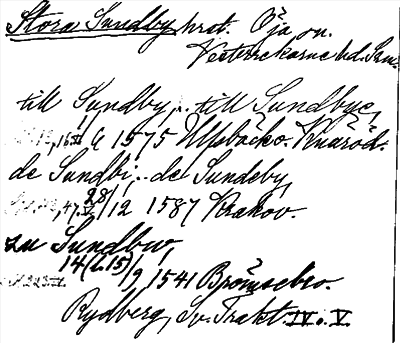 Stora Sundby, hrst. Öja sn.
Vesterrekarne hd. Sm.
till Sundby,.. till Sundbyc,
11/6 1575 Upsbäcko. Knäröd.
de Sundbi,.. de Sundeby,
28/12 1587 Krakov.
zu Sundbw,
14 (l. 15)/9 1541 Brömsebro.
Rydberg, Sv. Trakt. IV o. V.